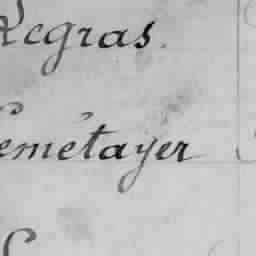 Legras
Lemétayer